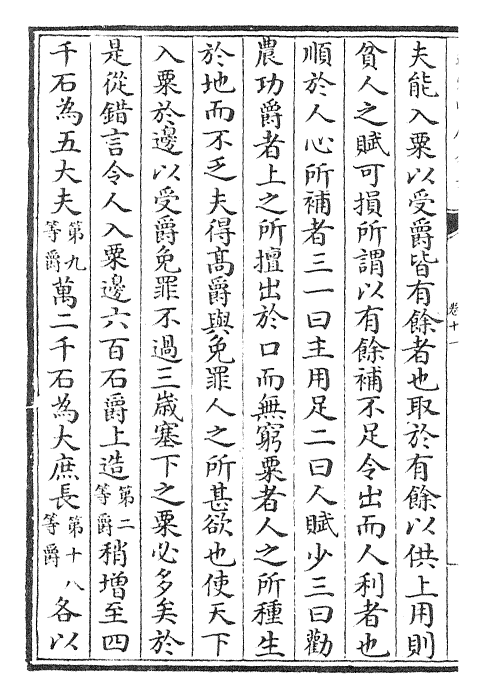 夫能入粟以受爵皆有餘者也取於有餘以供上用則
貧人之賦可損所謂以有餘補不足令出而人利者也
順於人心所補者三一曰主用足二曰人賦少三曰勸
農功爵者上之所擅出於口而無窮粟者人之所種生
於地而不乏夫得髙爵與免罪人之所甚欲也使天下
入粟於邊以受爵免罪不過三歳塞下之粟必多矣於
是從錯言令人入粟邊六百石爵上造第二等爵稍增至四
千石為五大夫第九等爵萬二千石為大庶長第十八等爵各以
卷十一